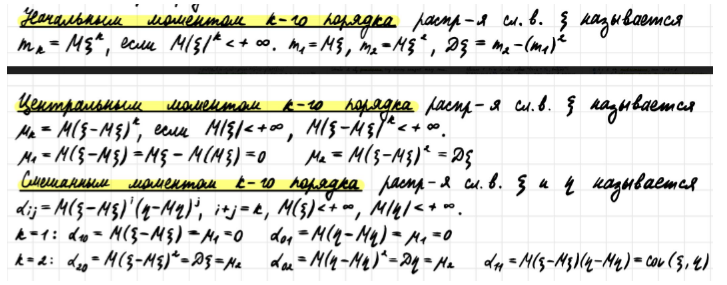 Начальным моментом k-го порядка распр-я сл. в. ξ называется
mₖ = Mξᵏ, если M|ξ|ᵏ < +∞. m₁ = Mξ, m₂ = Mξ², Dξ = m₂ - (m₁)²
Центральным моментом k-го порядка распр-я сл. в. ξ называется
μₖ = M(ξ-Mξ)ᵏ, если M|ξ| < +∞, M|ξ-Mξ|ᵏ < +∞.
μ₁ = M(ξ-Mξ) = Mξ - M(Mξ) = 0 μ₂ = M(ξ-Mξ)² = Dξ
Смешанным моментом k-го порядка распр-я сл. в. ξ и η называется
αij = M(ξ-Mξ)ⁱ(η-Mη)ʲ, i+j = k, M(ξ) < +∞, M|η| < +∞.
k=1: α₁₀ = M(ξ-Mξ) = μ₁ = 0 α₀₁ = M(η-Mη) = μ₁ = 0
k=2: α₂₀ = M(ξ-Mξ)² = Dξ = μ₂ α₀₂ = M(η-Mη)² = Dη = μ₂ α₁₁ = M(ξ-Mξ)(η-Mη) = cov(ξ, η)